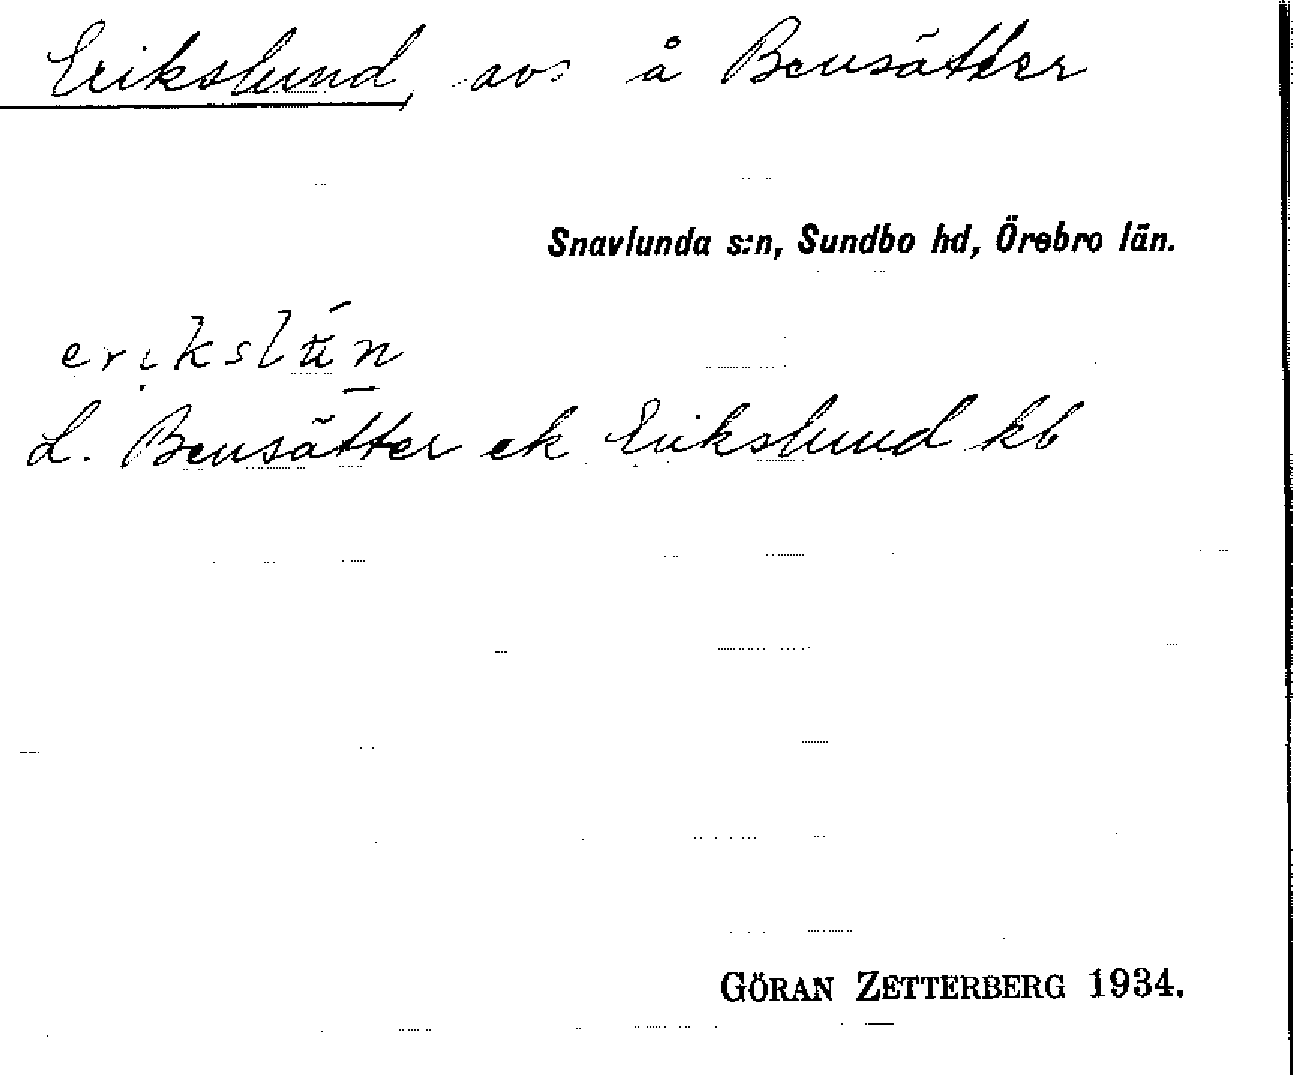 Erikslund, avs å Bensätter
Snavlunda s:n, Sundbo hd, Örebro län.
erikslún
L. Bensätter ek Erikslund kb
GÖRAN ZETTERBERG 1934.